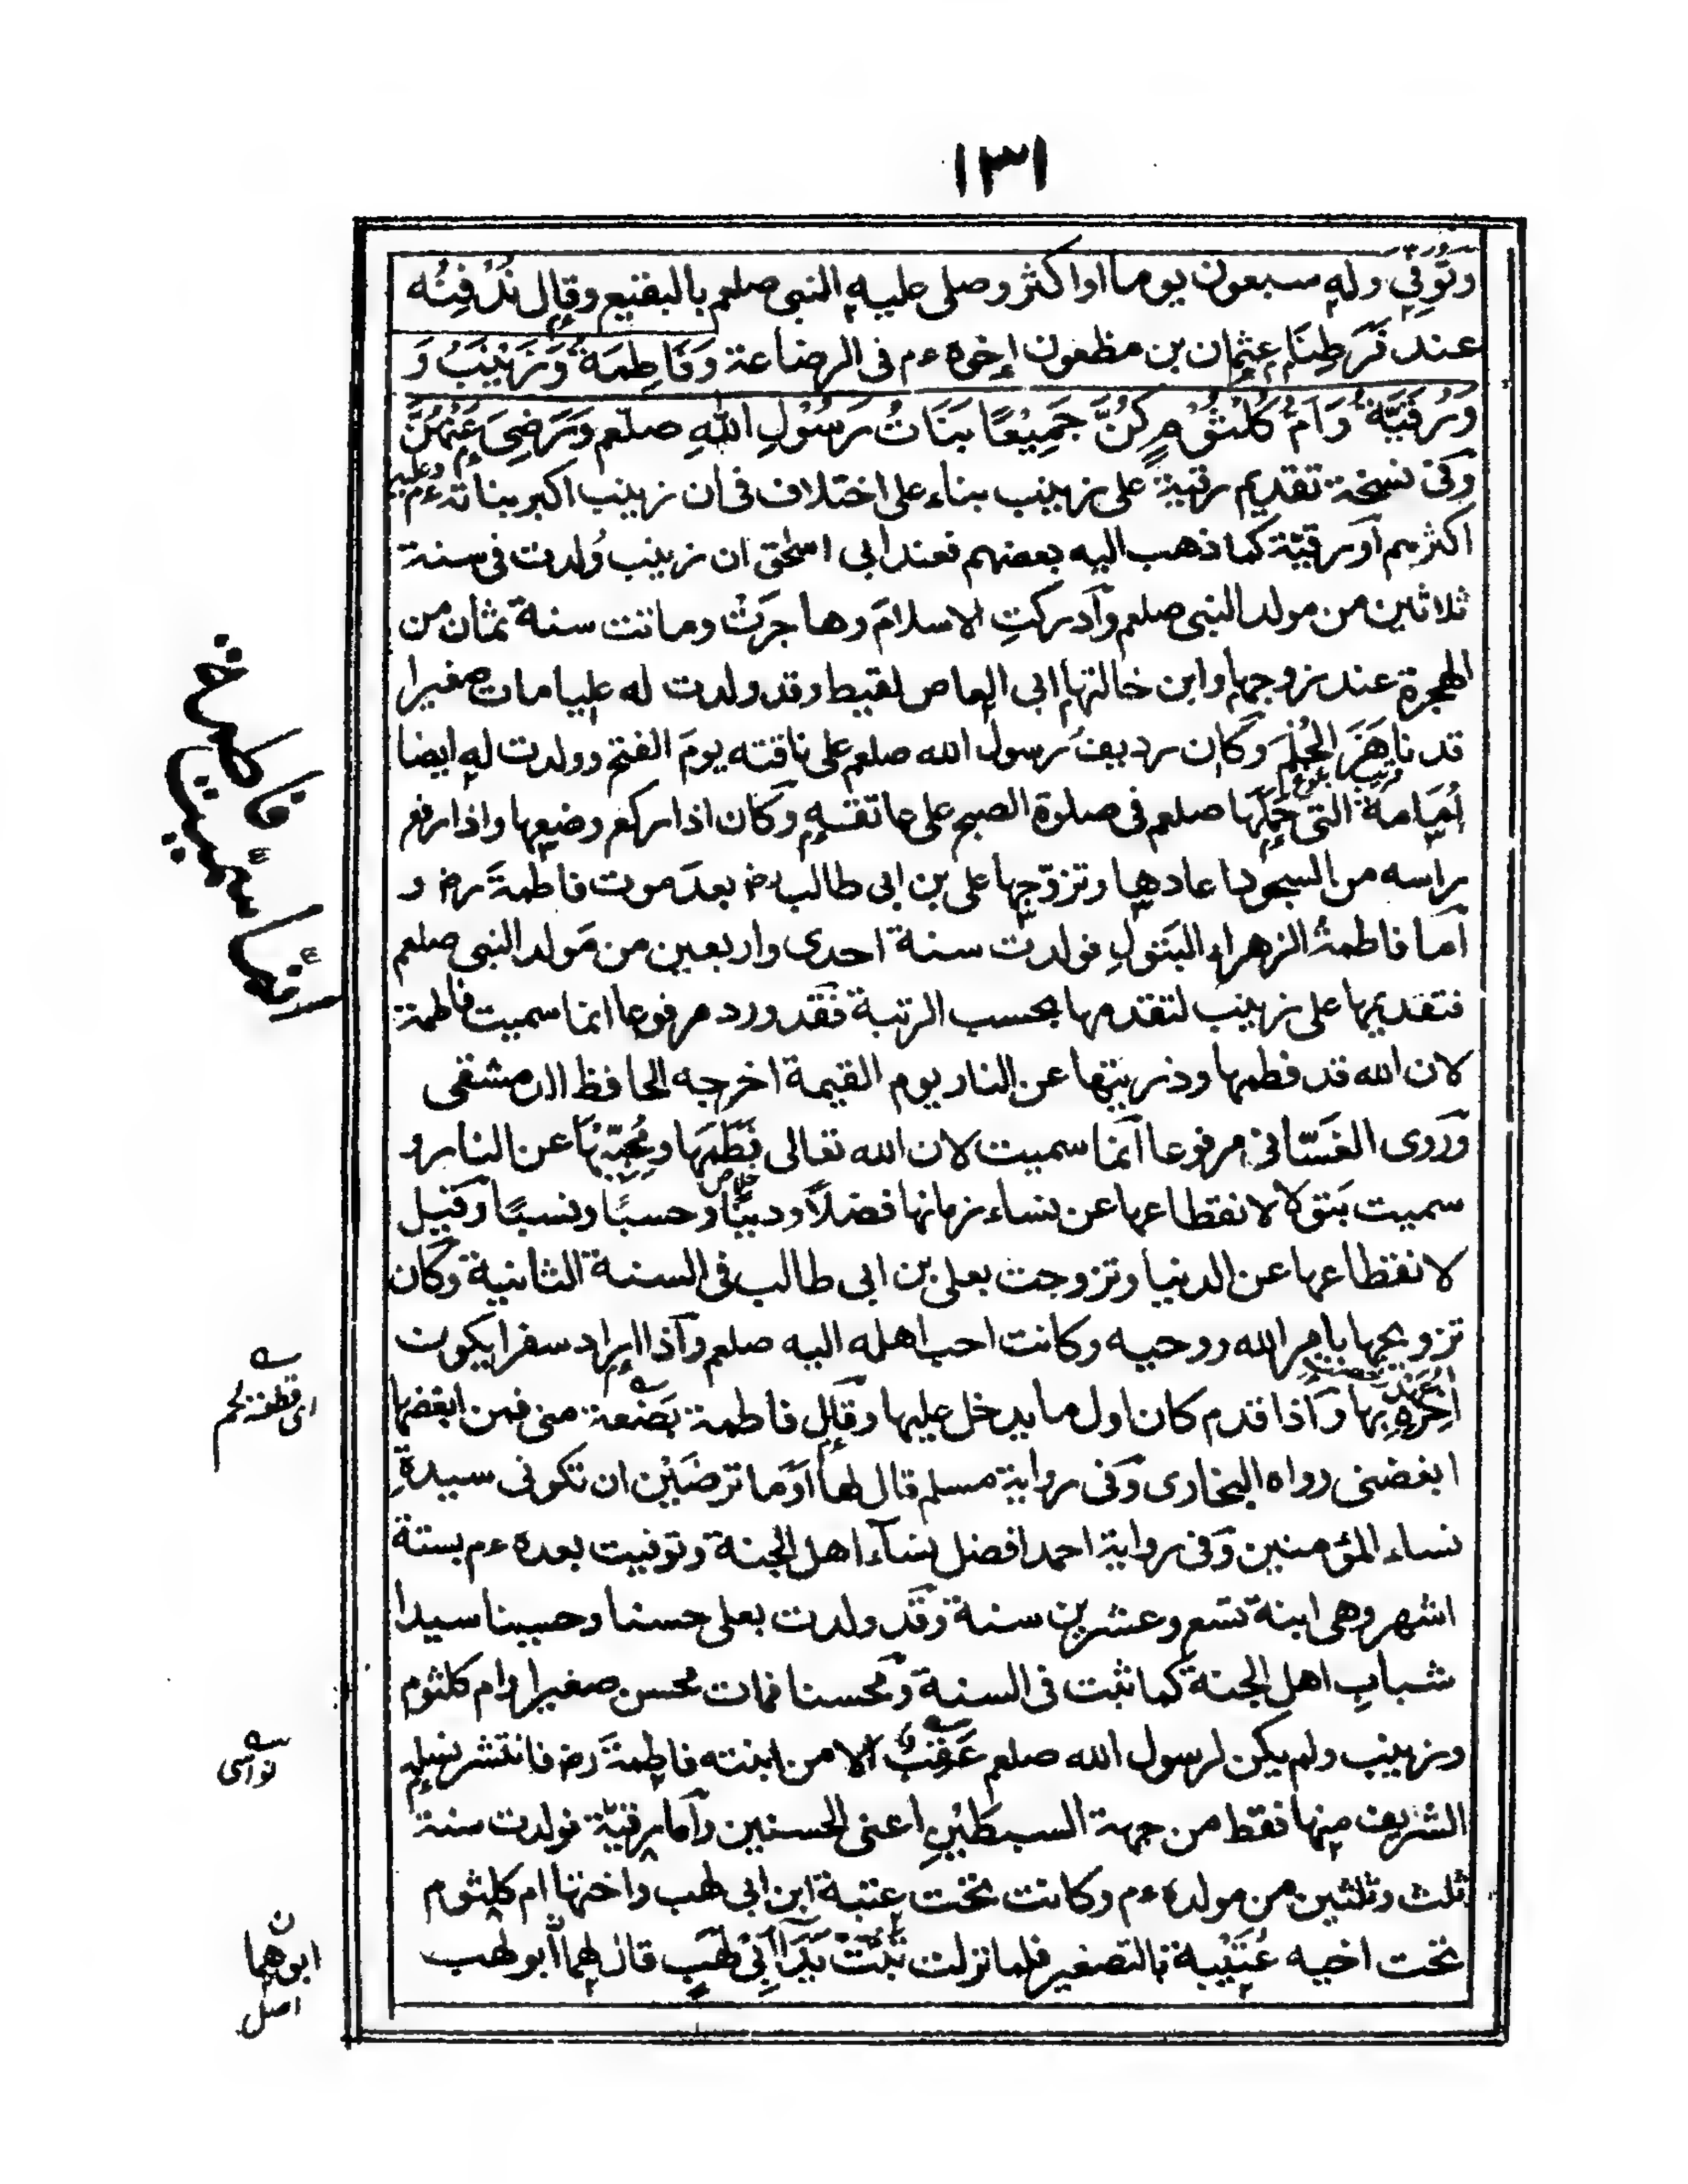 ١٣١
وَتُوُفِّيَ وله سبعون يوما او اكثر وصلى عليه النبى صلعم بالبقيع وقال نَدْفِنُه
عند فَرَطِنَا عثمان بن مظعون اخوه ءم فى الرضاعة وَفَاطِمَةُ وَزَيْنَبُ وَ
وَرُقَيَّةُ وَاُمُّ كُلْثُوْمٍ كُنَّ جَمِيْعًا بَنَاتُ رَسُوْلِ اللّٰهِ صلّعم وَرَضِىَ عَنْهُنَّ
وفى نسخة تقديم رقية على زينب بناء على اختلاف فى ان زينب اكبر بناته ءم وعليه
اكثرهم او رقيّة كما ذهب اليه بعضهم فعند ابى اسحٰق ان زينب وُلدت فى سنة
ثلاثين من مولد النبى صلعم وادركتِ الاسلامَ وهاجرَتْ وماتت سنة ثمان من
الهجرة عند زوجها وابن خالتها ابى العاص لقيط وقد ولدت له عليا مات صغيرا
قد ناهَزَ الحُلُمَ وكان رديفَ رسول الله صلعم على ناقته يومَ الفتح وولدت له ايضا
قريب بلوغ
اُمَامةَ التى حَمَلَها صلعم فى صلوة الصبح على عاتقه وكان اذا ركع وضعها واذا رفع
راسه من السجود اعادها وتزوّجها على بن ابى طالب رض بعدَ موت فاطمةَ رض و
اما فاطمةُ الزهراء البَتولِ فولدت سنة احدى واربعين من مَولد النبى صلعم
فتقديمها على زينب لتقدمها بحسب الرتبة فقد ورد مرفوعا انما سميت فاطمة
لان الله قد فطمها وذريتها عن النار يوم القيمة اخرجه الحافظ الدمشقى
وروى الغَسّانى مرفوعا انما سميت لان الله تعالى فَطَمَهَا ومُحِبّيْهَا عن النار و
خلاص
سميت بَتولا لانقطاعها عن نساء زمانها فضلًا ودينًا وحسبًا ونسبًا وقيل
لانقطاعها عن الدنيا وتزوجت بعلى بن ابى طالب فى السنة الثانية وكان
تزويجها بامر الله ووحيه وكانت احب اهله اليه صلعم واذا اراد سفرا يكون
اٰخِرُ عَهْدِهِ بها واذا قدم كان اول ما يدخل عليها وقال فاطمة بَضْعة منى فمن ابغضها
ابغضنى رواه البخارى وفى رواية مسلم قال لها اوَما ترضَيْن ان تكونى سيدةَ
نساء المؤمنين وفى رواية احمد افضل نساء اهل الجنة وتوفيت بعده ءم بستة
اشهر وهى ابنة تسع وعشرين سنة وقد ولدت بعلى حسنا وحسينا سيدا
شبابِ اهل الجنة كما ثبت فى السنة ومحسنا فمات محسن صغيرا وام كلثوم
وزينب ولم يكن لرسول الله صلعم عَقَبٌ الا من ابنته فاطمةَ رض فانتشر نسله
الشريف منها فقط من جهة السبطَيْنِ اعنى الحسنين واما رقيّة فولدت سنة
ثلث وثلثين من مولده ءم وكانت تحت عتبة ابن ابى لهب واختها ام كلثوم
تحت اخيه عُتَيْبة بالتصغير فلما نزلت تَبَّتْ يَدَا اَبِىْ لَهَبٍ قال لهما ابو لهب
انما سمّيت فاطمة الخ
اى قطعة لحم
نواسى
ابوهما
ن
اصل